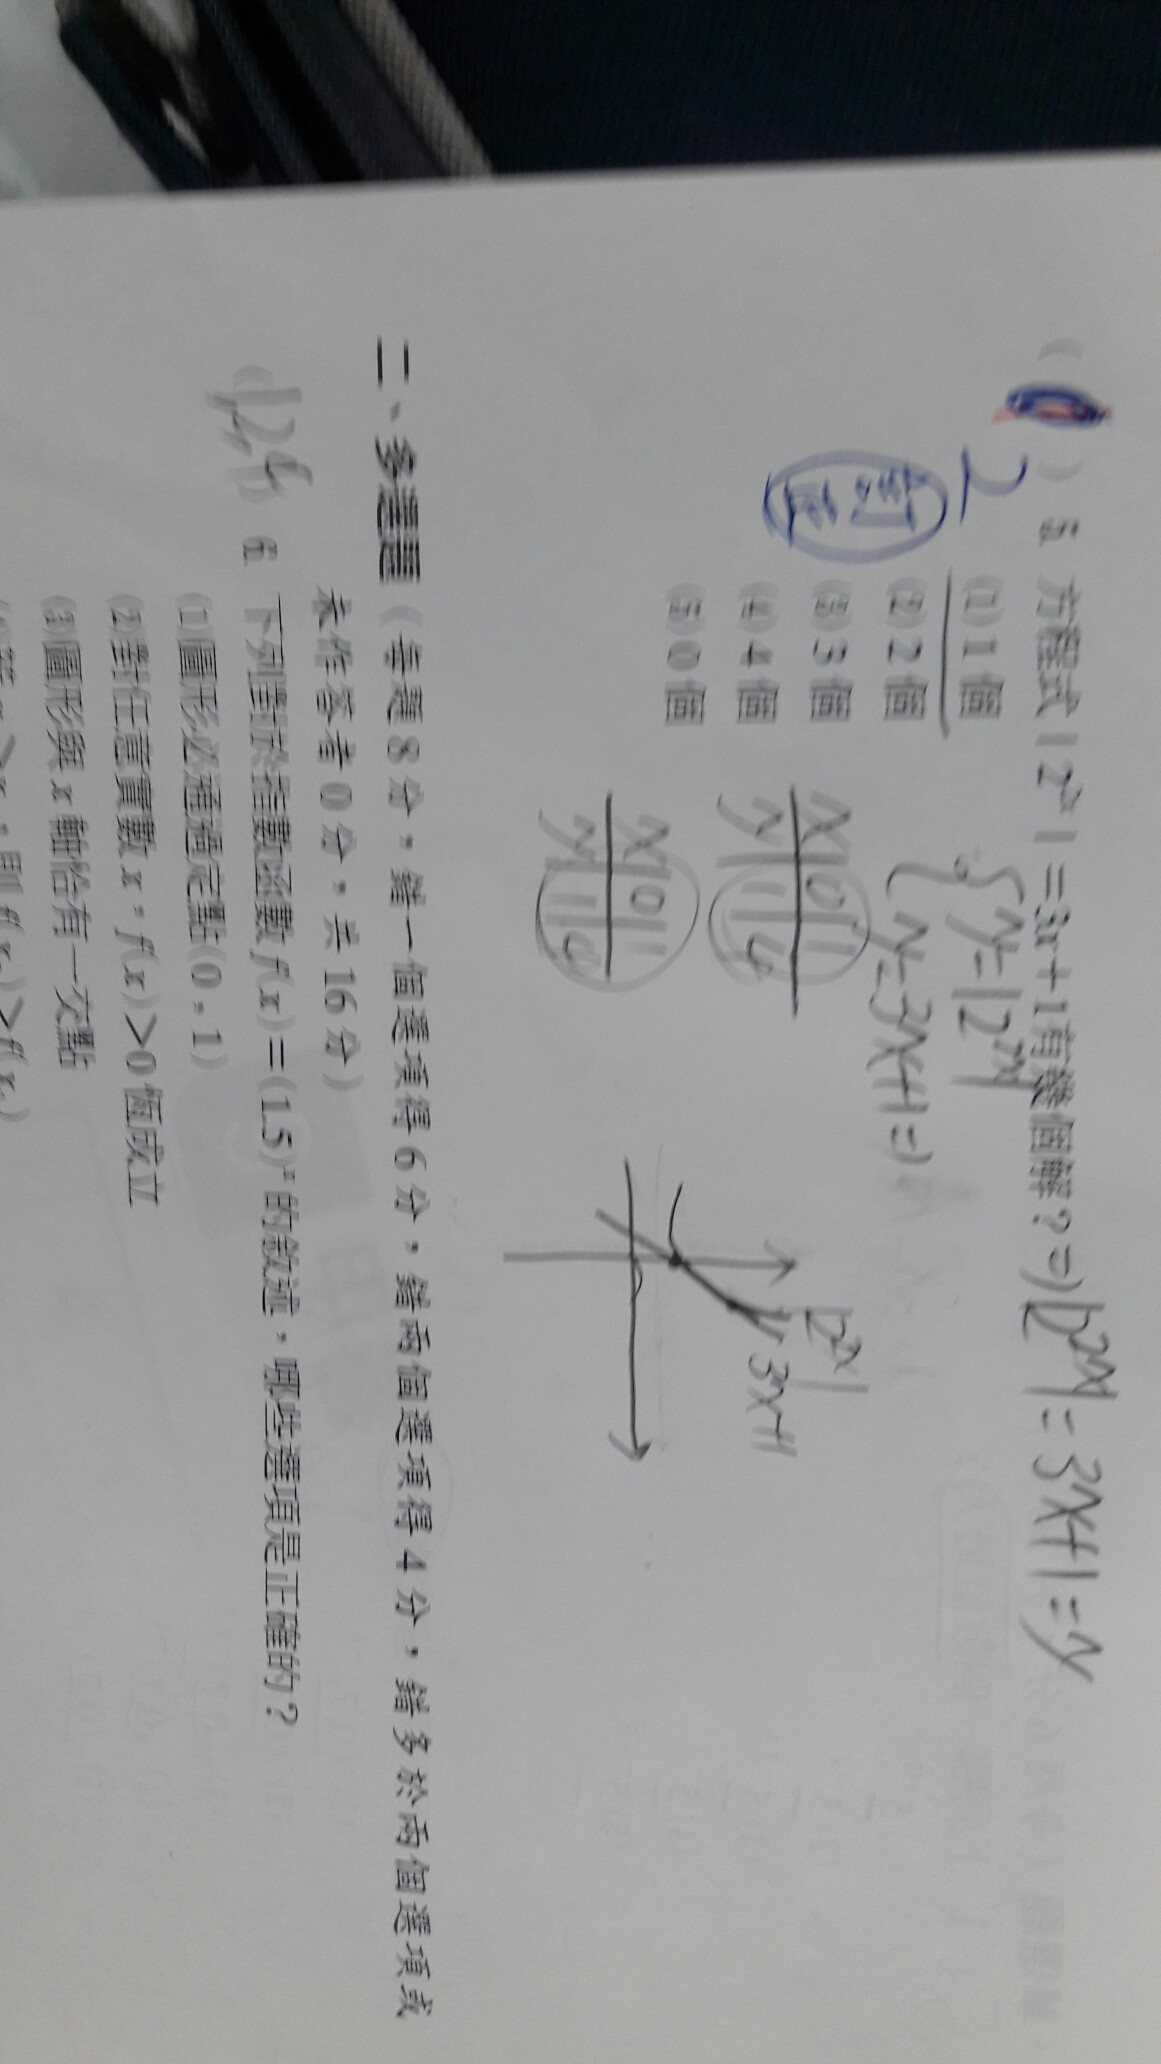 ( ) 5. 方程式 | 2²ˣ | = 3x + 1 有幾個解? ⇒ |2²ˣ| = 3x+1 = y
2
訂正
(1) 1 個
(2) 2 個
(3) 3 個
(4) 4 個
(5) 0 個
{ y = |2²ˣ|
y = 3x+1 ⇒
x | 0 | 1
y | 1 | 4
x | 0 | 1
y | 1 | 4
|2²ˣ|
3x+1
二、多選題 ( 每題 8 分,錯一個選項得 6 分,錯兩個選項得 4 分,錯多於兩個選項或
未作答者 0 分,共 16 分 )
6. 下列對於指數函數 f(x) = (1.5)ˣ 的敘述,哪些選項是正確的?
(1) 圖形必通過定點 (0,1)
(2) 對任意實數 x,f(x) > 0 恆成立
(3) 圖形與 x 軸恰有一交點